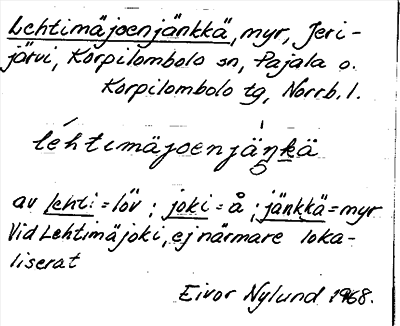 Lehtimäjoenjänkkä, myr, Jeri-
järvi, Korpilombolo sn, Pajala o.
Korpilombolo tg, Norrb. l.
léhtimäjoenjäŋkä
av lehti = löv ; joki = å ; jänkkä = myr
Vid Lehtimäjoki, ej närmare loka-
liserat
Eivor Nylund 1968.